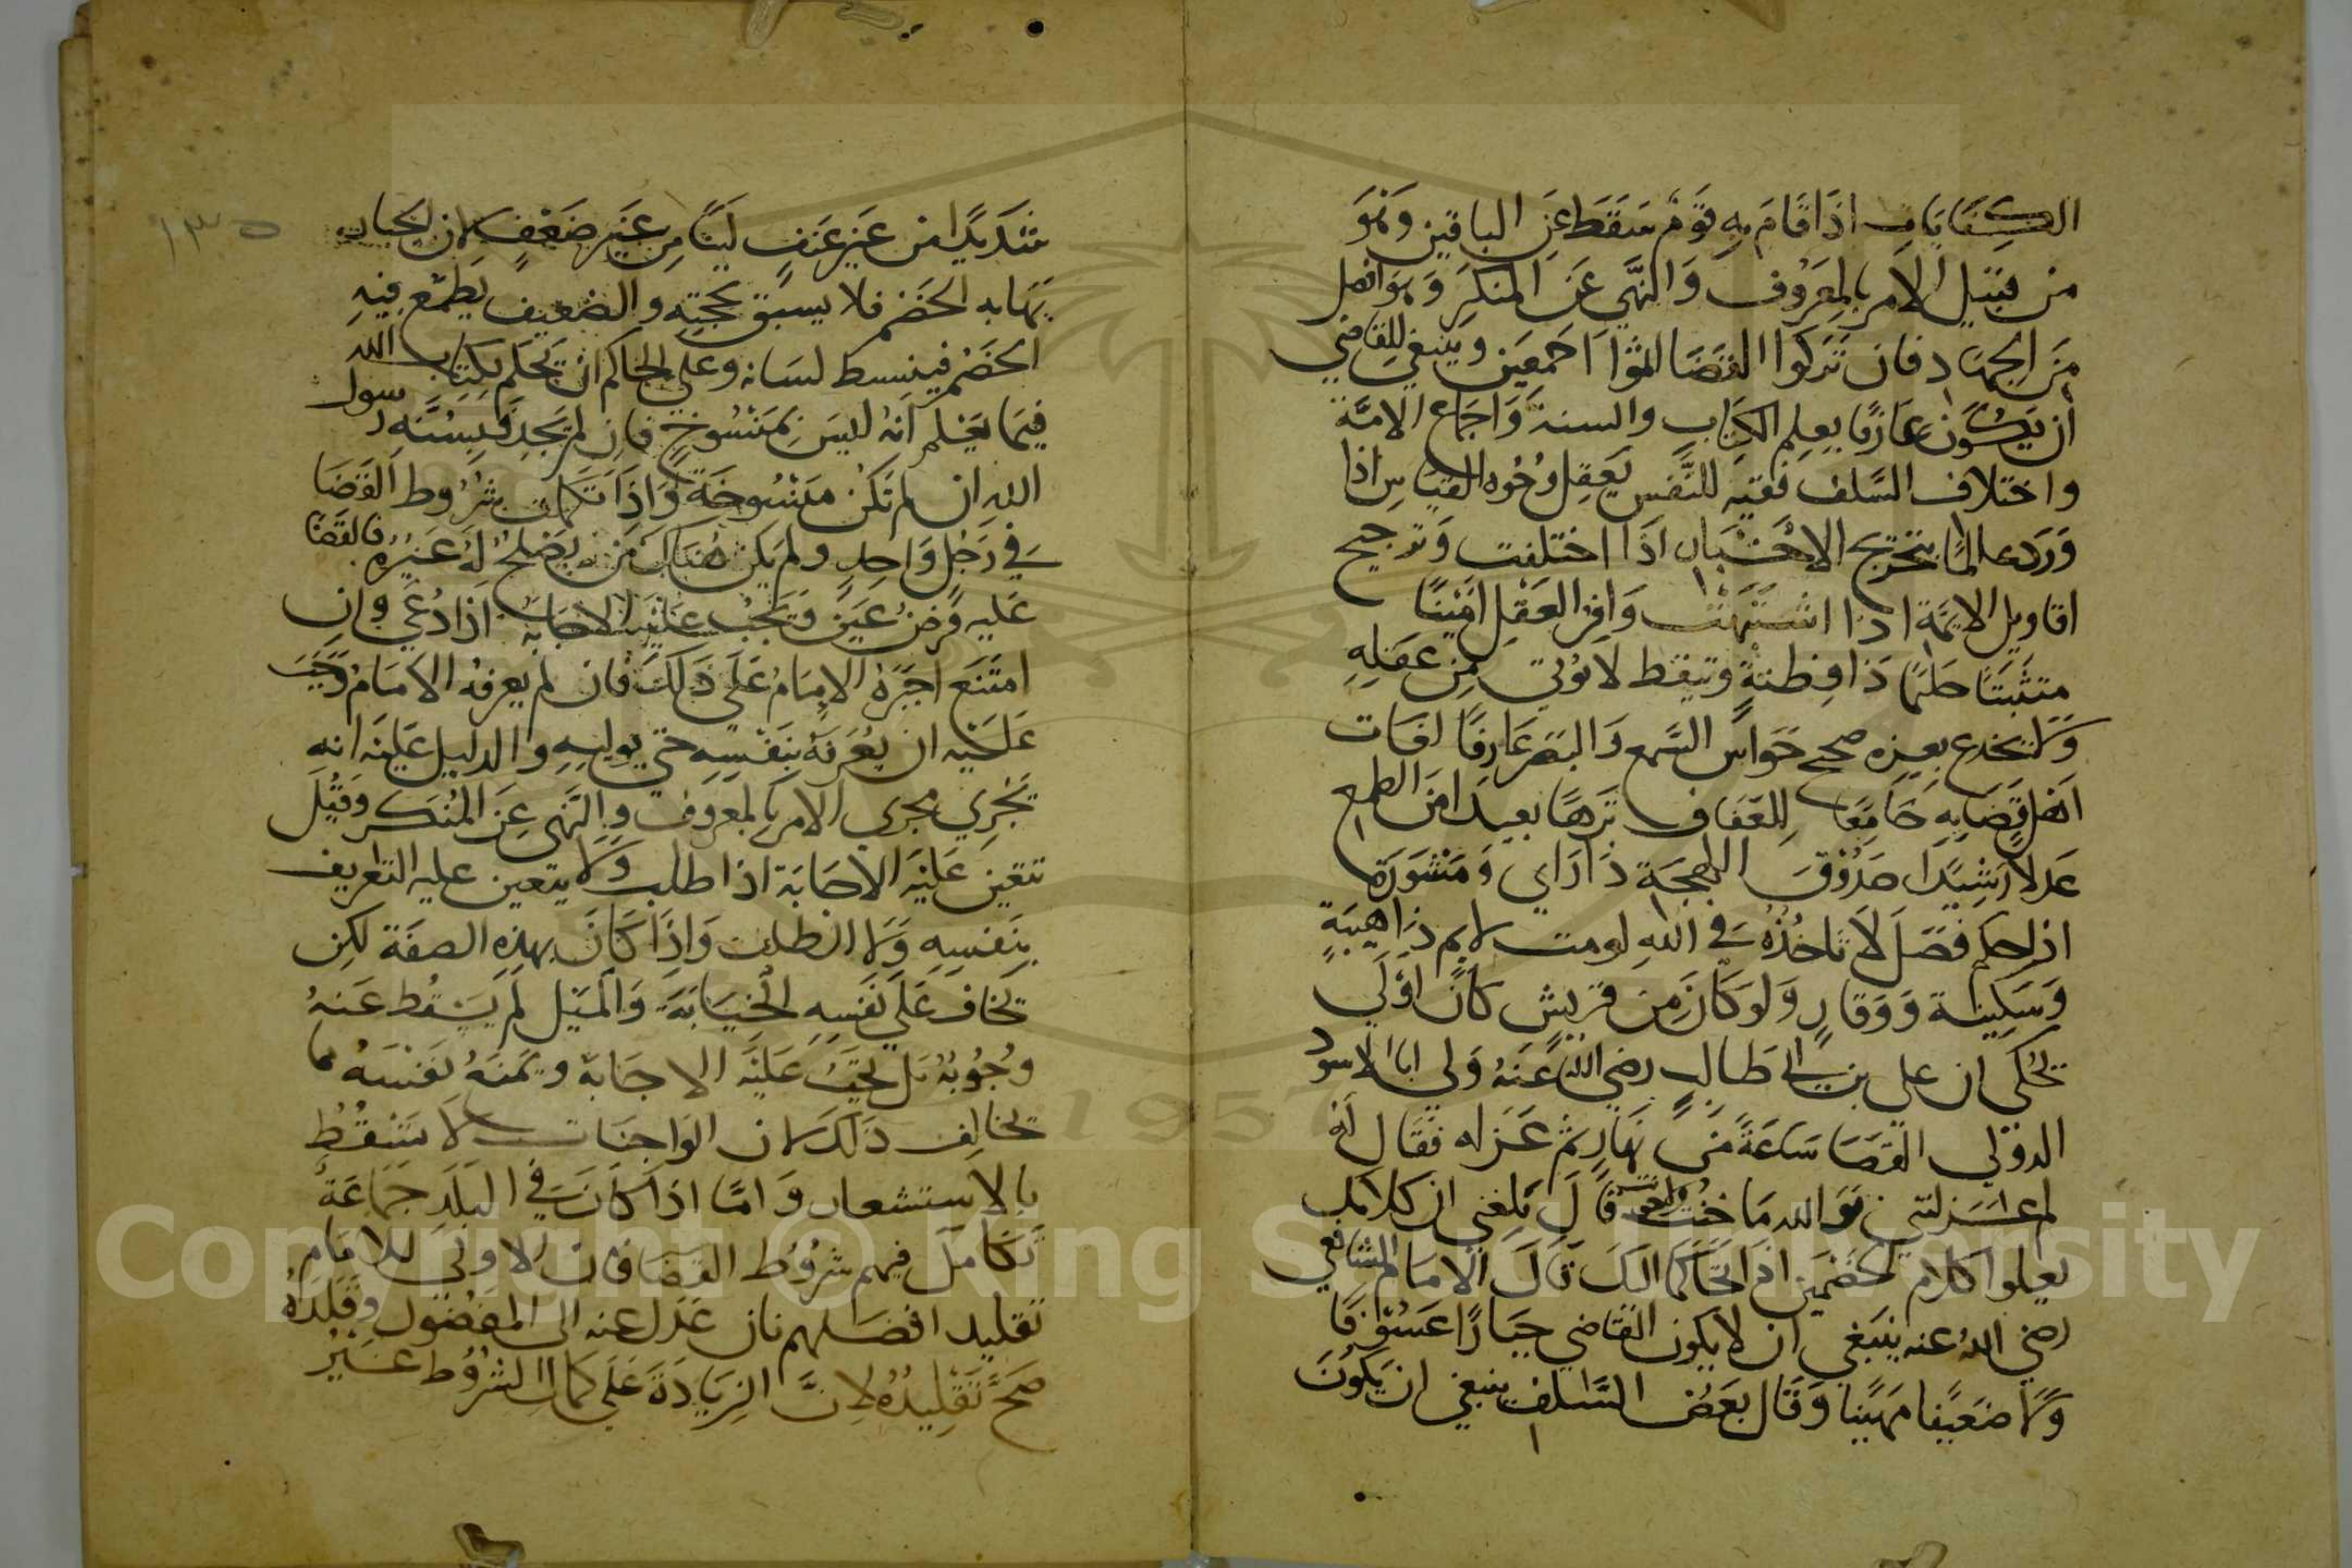 الكفايات اذا قام به قوم سقط عن الباقين وهو
من قبيل الامر بالمعروف والنهي عن المنكر وهو افضل
من الجهاد فان تركوا القضا اثموا اجمعين وينبغي للقاضي
ان يكون عارفا بعلم الكتاب والسنة واجماع الامة
واختلاف السلف فقيه النفس يعقل وجوه القياس اذا
ورد عالما بتخريج الاخبار اذا اختلفت وترجيح
اقاويل الايمة اذا اشتبهت وافر العقل امينا
متثبتا حلما ذا فطنة وتيقظ لا يوتي من عقله
ولا يخدع بعزه صحيح حواس السمع والبصر عارفا افات
اهل قضايه جامعا للعفاف نزها بعيدا من الطمع
عدلا رشيدا صدوق اللهجة ذا راي ومشورة
اذا حكم فصل لا تاخذه في الله لومت لايم ذا هيبة
وسكينة ووقار ولو كان من قريش كان اولي
يحكي ان علي بن ابي طالب رضي الله عنه ولي ابا الاسود
الدولي القضا ساعة من نهار ثم عزله فقال له
لم عزلتني فوالله ما خنت قال بلغني ان كلامك
يعلوا كلام الخصمين اذا تحاكما اليك قال الامام الشافعي
رضي الله عنه ينبغي ان لا يكون القاضي جبارا عسوفا
ولا ضعيفا مهينا وقال بعض السلف ينبغي ان يكون
١٣٥
شديدا من غير عنف لينا من غير ضعف لان الجبار
يهابه الخصم فلا يسبق بحجته والضعيف يطمع فيه
الخصم فينبسط لسانه وعلي الحاكم ان يحكم بكتاب الله
فيما يعلم انه ليس بمنسوخ فان لم يجد فبسنه رسول
الله ان لم تكن منسوخة واذا تكملت شروط القضا
في رجل واحد ولم يكن هناك من يصلح له غيره فالقضا
عليه فرض عين وتجب عليه الاجابة اذا دعي وان
امتنع اجبره الامام علي ذلك فان لم يعرفه الامام وجب
عليه ان يعرفه بنفسه حتي يوليه والدليل عليه انه
يجري مجري الامر بالمعروف والنهي عن المنكر وقيل
تتعين عليه الاجابة اذا طلب ولا يتعين عليه التعريف
بنفسه ولا الطلب واذا كان بهذه الصفة لكن
يخاف علي نفسه الخيانة والميل لم يسقط عنه
وجوبه بل يجب عليه الاجابة ويمنع نفسه ما
يخالف ذلك لان الواجبات لا تسقط
بالاستشعار واما اذا كان في البلد جماعة
تكامل فيهم شروط القضا فان الاولي للامام
تقليد افضلهم فان عدل عنه الي المفضول وقلده
صح تقليده لان الزيادة علي كمال الشروط غير
Copyright © King University
1957